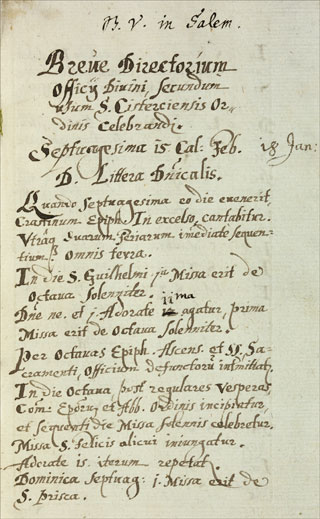 B. V. in Salem.
Breve Directorium
Officij Divini, secundum
usum S. Cisterciensis Or-
dinis Celebrandi.
Septuagesima 15 Cal: Feb. 18 Jan:
D. Littera Dnicalis.
Quando Septuagesima eo die evenerit,
Crastinum Epiph. In excelso, cantabitur.
Utraq duarum feriarum imediate sequen-
tium Omnis terra.
In die S. Guilhelmi Missa erit de
Octava Solenniter.
iima
Dne ne. et j. Adorate agatur, prima
Missa erit de Octava Solenniter.
Per Octavas Epiph. Ascens. et SS. Sa-
cramenti, Officium defunctorũ intmittat.
In die Octava post regulares Vesperas,
Com: Eporũ et Abb. Ordinis incipiatur,
et sequenti die Missa solennis celebretur,
Missa S. Felicis alicui iniungatur.
Adorate is. iterum repetat.
Dominica Septuag: j. Missa erit de
S. Prisca.